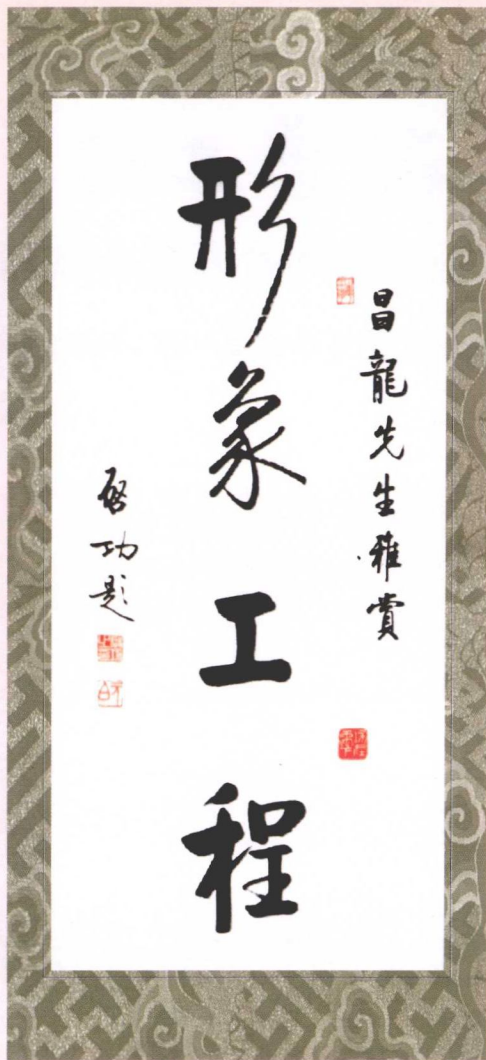 昌龍先生雅賞
形象工程
啓功題